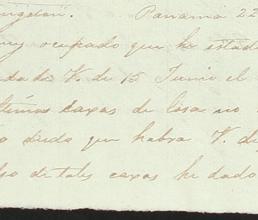 Panamá 22
muy ocupado que he estado
de V. de 15 Junio el
caxas de losa no
dudo que habra V. di
de tales caxas he dado